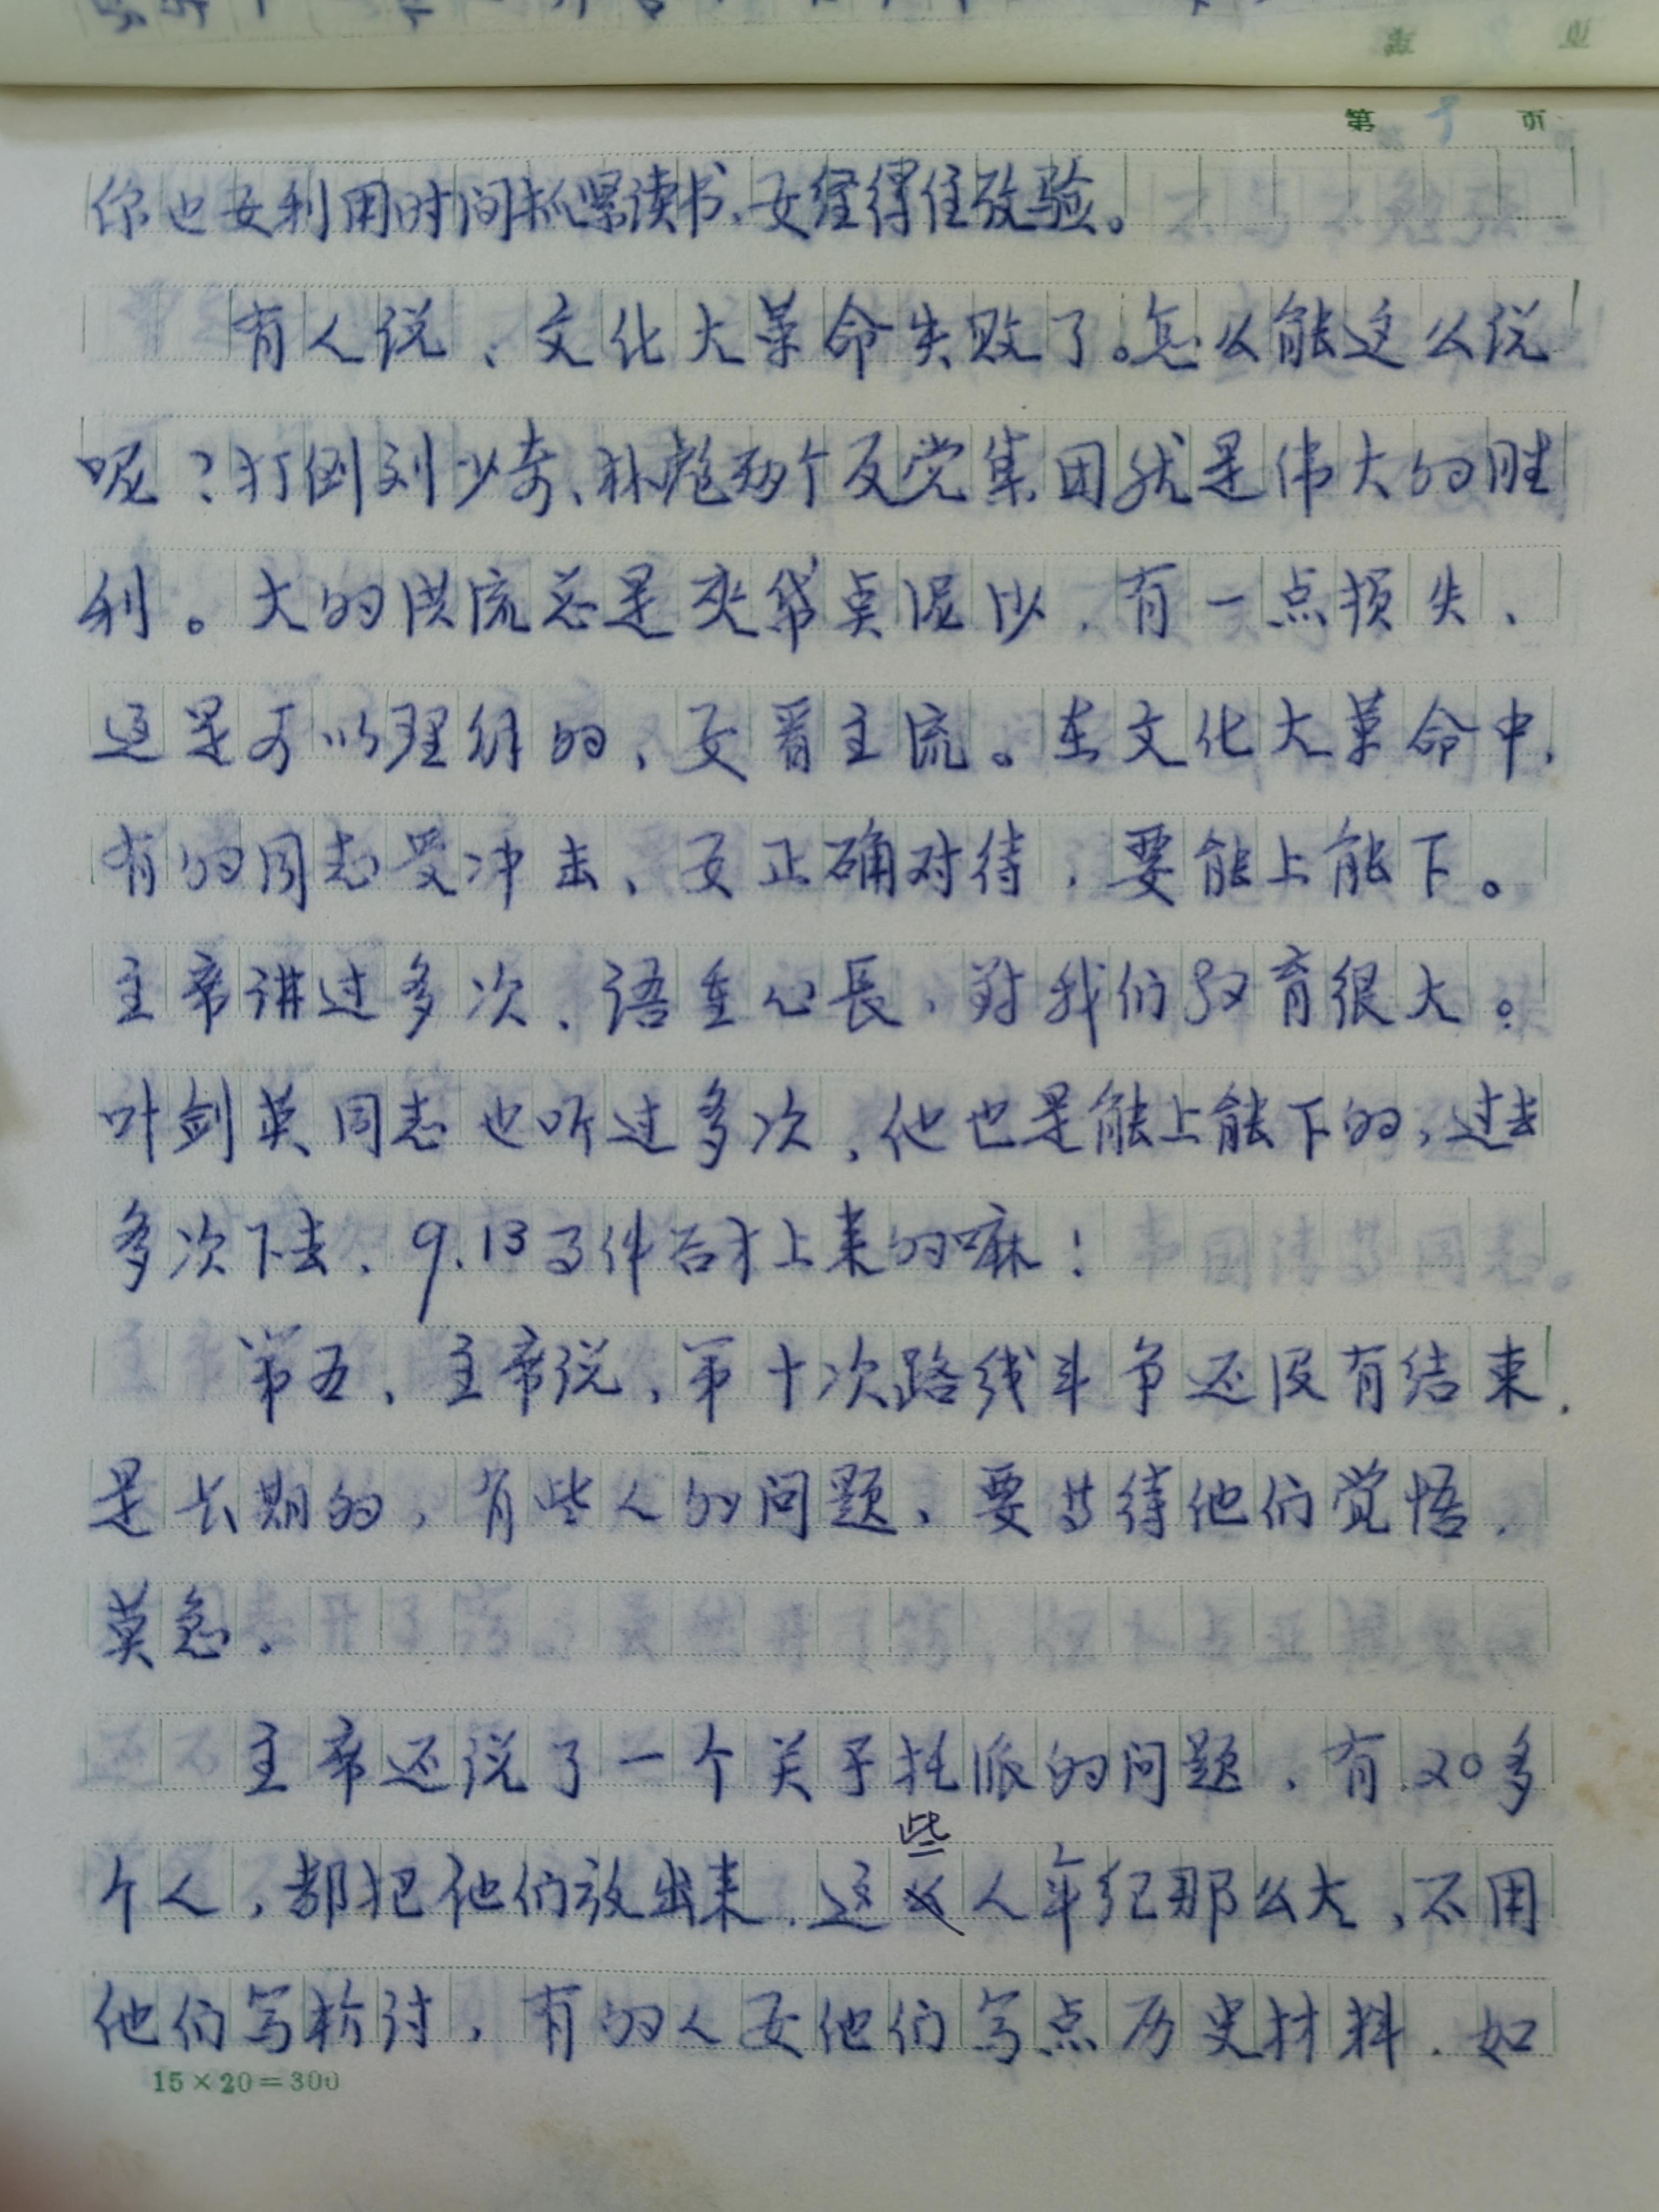 第 页
你也要利用时间抓紧读书、要经得住攷验。
有人说、文化大革命失败了。怎么能这么说
呢？打倒刘少奇、林彪两个反党集团就是伟大的胜
利。大的洪流总是夹带臭泥沙，有一点损失、
这是可以理解的、要看主流。在文化大革命中，
有的同志受冲击、要正确对待，要能上能下。
主席讲过多次、语重心長，对我们教育很大。
叶剑英同志也听过多次，他也是能上能下的，过去
多次下去，9.13事件后才上来的嘛！
第五、主席说，第十次路线斗争还没有结束，
是长期的，有些人的问题、要等待他们觉悟，
莫急。
主席还说了一个关于托派的问题，有20多
个人，都把他们放出来，这些人年纪那么大，不用
他们写检讨，有的人要他们写点历史材料，如
15×20=300